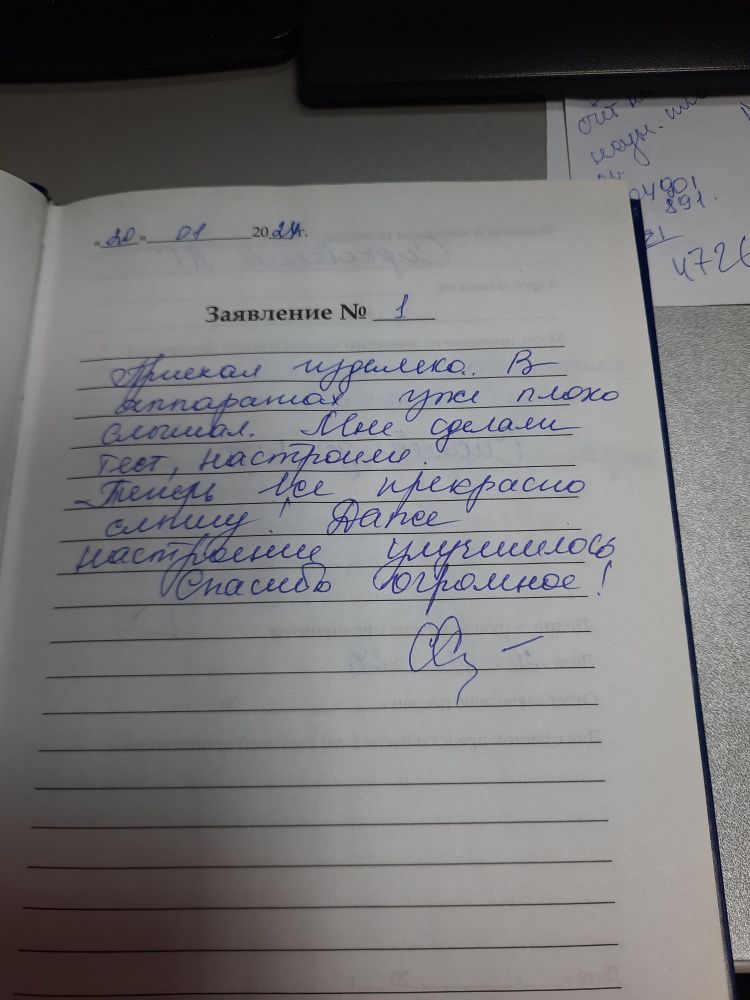 «20» 01 2024г.
Заявление № 1
Приехал издалека. В
аппаратах уже плохо
слышал. Мне сделали
тест, настроили.
Теперь все прекрасно
слышу! Даже
настроение улучшилось
Спасибо огромное!
04901
891.
4726